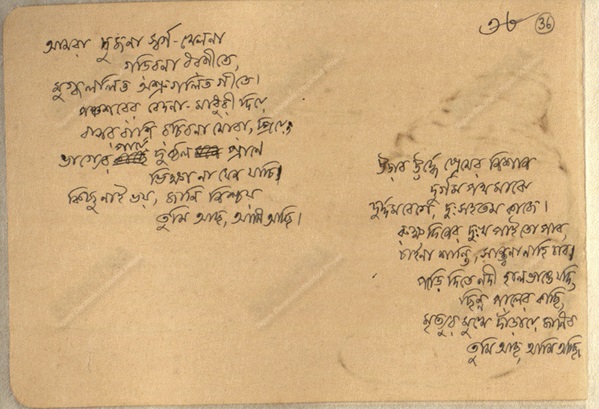 ৩৬ 36
আমরা দুজনা স্বর্গ-খেলনা
গড়িবনা ধরণীতে,
মুগ্ধললিত অশ্রুগলিত গীতে।
পঞ্চশরের বেদনা-মাধুরী দিয়ে
বাসর রাত্রি রচিবনা মোরা, প্রিয়ে;
ভাগ্যের পায়ে দুর্বল প্রাণে
ভিক্ষা না যেন যাচি।
কিছু নাই ভয়, জানি নিশ্চয়
তুমি আছ, আমি আছি।
উড়াব ঊর্ধ্বে প্রেমের নিশান
দুর্গম পথ মাঝে
দুর্দ্দম বেগে, দুঃসহতম কাজে।
রুক্ষ দিনের দুঃখ পাইতো পাব,
চাইনা শান্তি, সান্ত্বনা নাহি চাব।
পাড়ি দিতে নদী হাল ভাঙে যদি,
ছিন্ন পালের কাছি,
মৃত্যুর মুখে দাঁড়ায়ে জানিব
তুমি আছ, আমি আছি,